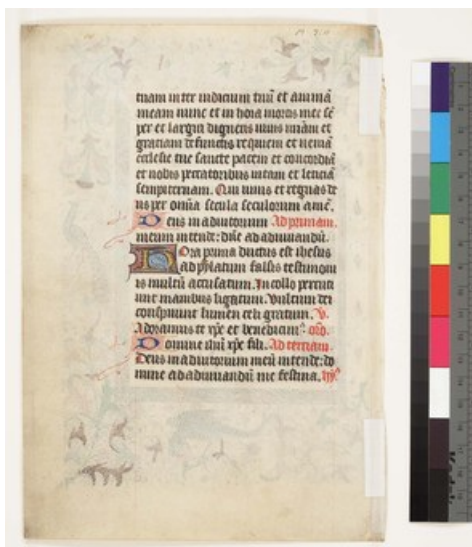 tuam inter iudicium tuū et animā
meam nunc et in hora mortis mee et
per et largiri digneris viuis mīam et
graciam defunctis requiem et veniā
ecclesie tue sancte pacem et concordiā
et nobis peccatoribus vitam et leticiā
sempiternam. Qui viuis et regnas de
us per omīa secula seculorum amē.
Deus in adiutorium Ad primam.
meum intende: dñe ad adiuuandū.
Hora prima ductus est ihesus
ad pylatum falsis testimoni
is multū accusatum. In collo percuti
unt manibus ligatum. Vultum dei
conspuunt lumen celi gratum. V.
Adoramus te xpe et benedicim9. oro.
Domine ihū xpe fili. Ad terciam.
Deus in adiutorium meū intende: do
mine ad adiuuandū me festina.